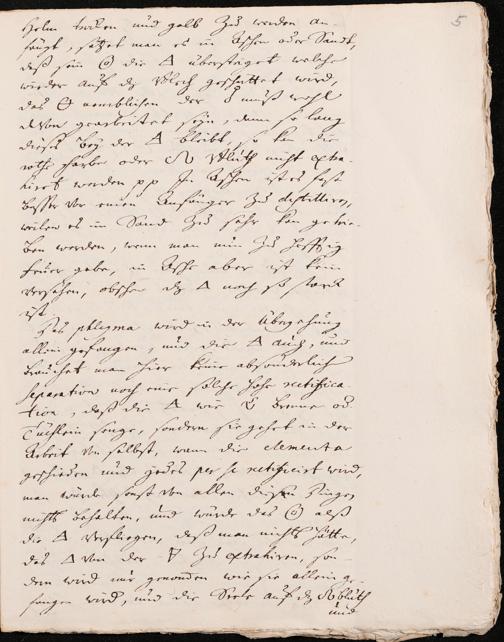 5
Helm treiben und gelb zu werden an-
fängt, setzet man es in Aschen oder Sandt,
daß sein die 🜂 übersteiget welche
wieder auf dz Blech geschüttet wird,
das der muß wohl
davon gearbeitet seyn, dann so lang
dieses bey der 🜂 bleibt, so kan die
rothe farbe oder Bluth nicht extra-
hiret werden pp In Aschen ist es fast
besser vor einen Anfänger zu destilliren,
weilen es in Sand zu sehr kan getrie-
ben werden, wenn man nun zu hefftig
feuer gebe, in Asche aber ist kein
versehen, obschon dz 🜂 noch so starck
ist.
Das phlegma wird in der Übergehung
allein gefangen, und die 🜂 auch, und
brauchet man hier keine absonderliche
separation noch eine solche hohe rectifica-
tion, daß die 🜂 wie brenne od.
Tüchlein senge, sondern sie gehet in der
Arbeit von selbst, wann die elementa
geschieden und jedes per se rectificirt wird,
man würde sonst von allen diesen dingen
nichts behalten, und würde das alß
die 🜂 verfliegen, daß man nichts hätte,
das 🜂 von der 🜃 zu extrahiren, son-
dern wird nur genommen wie sie allein ge-
fangen wird, und die Seele auf dz bluth
und